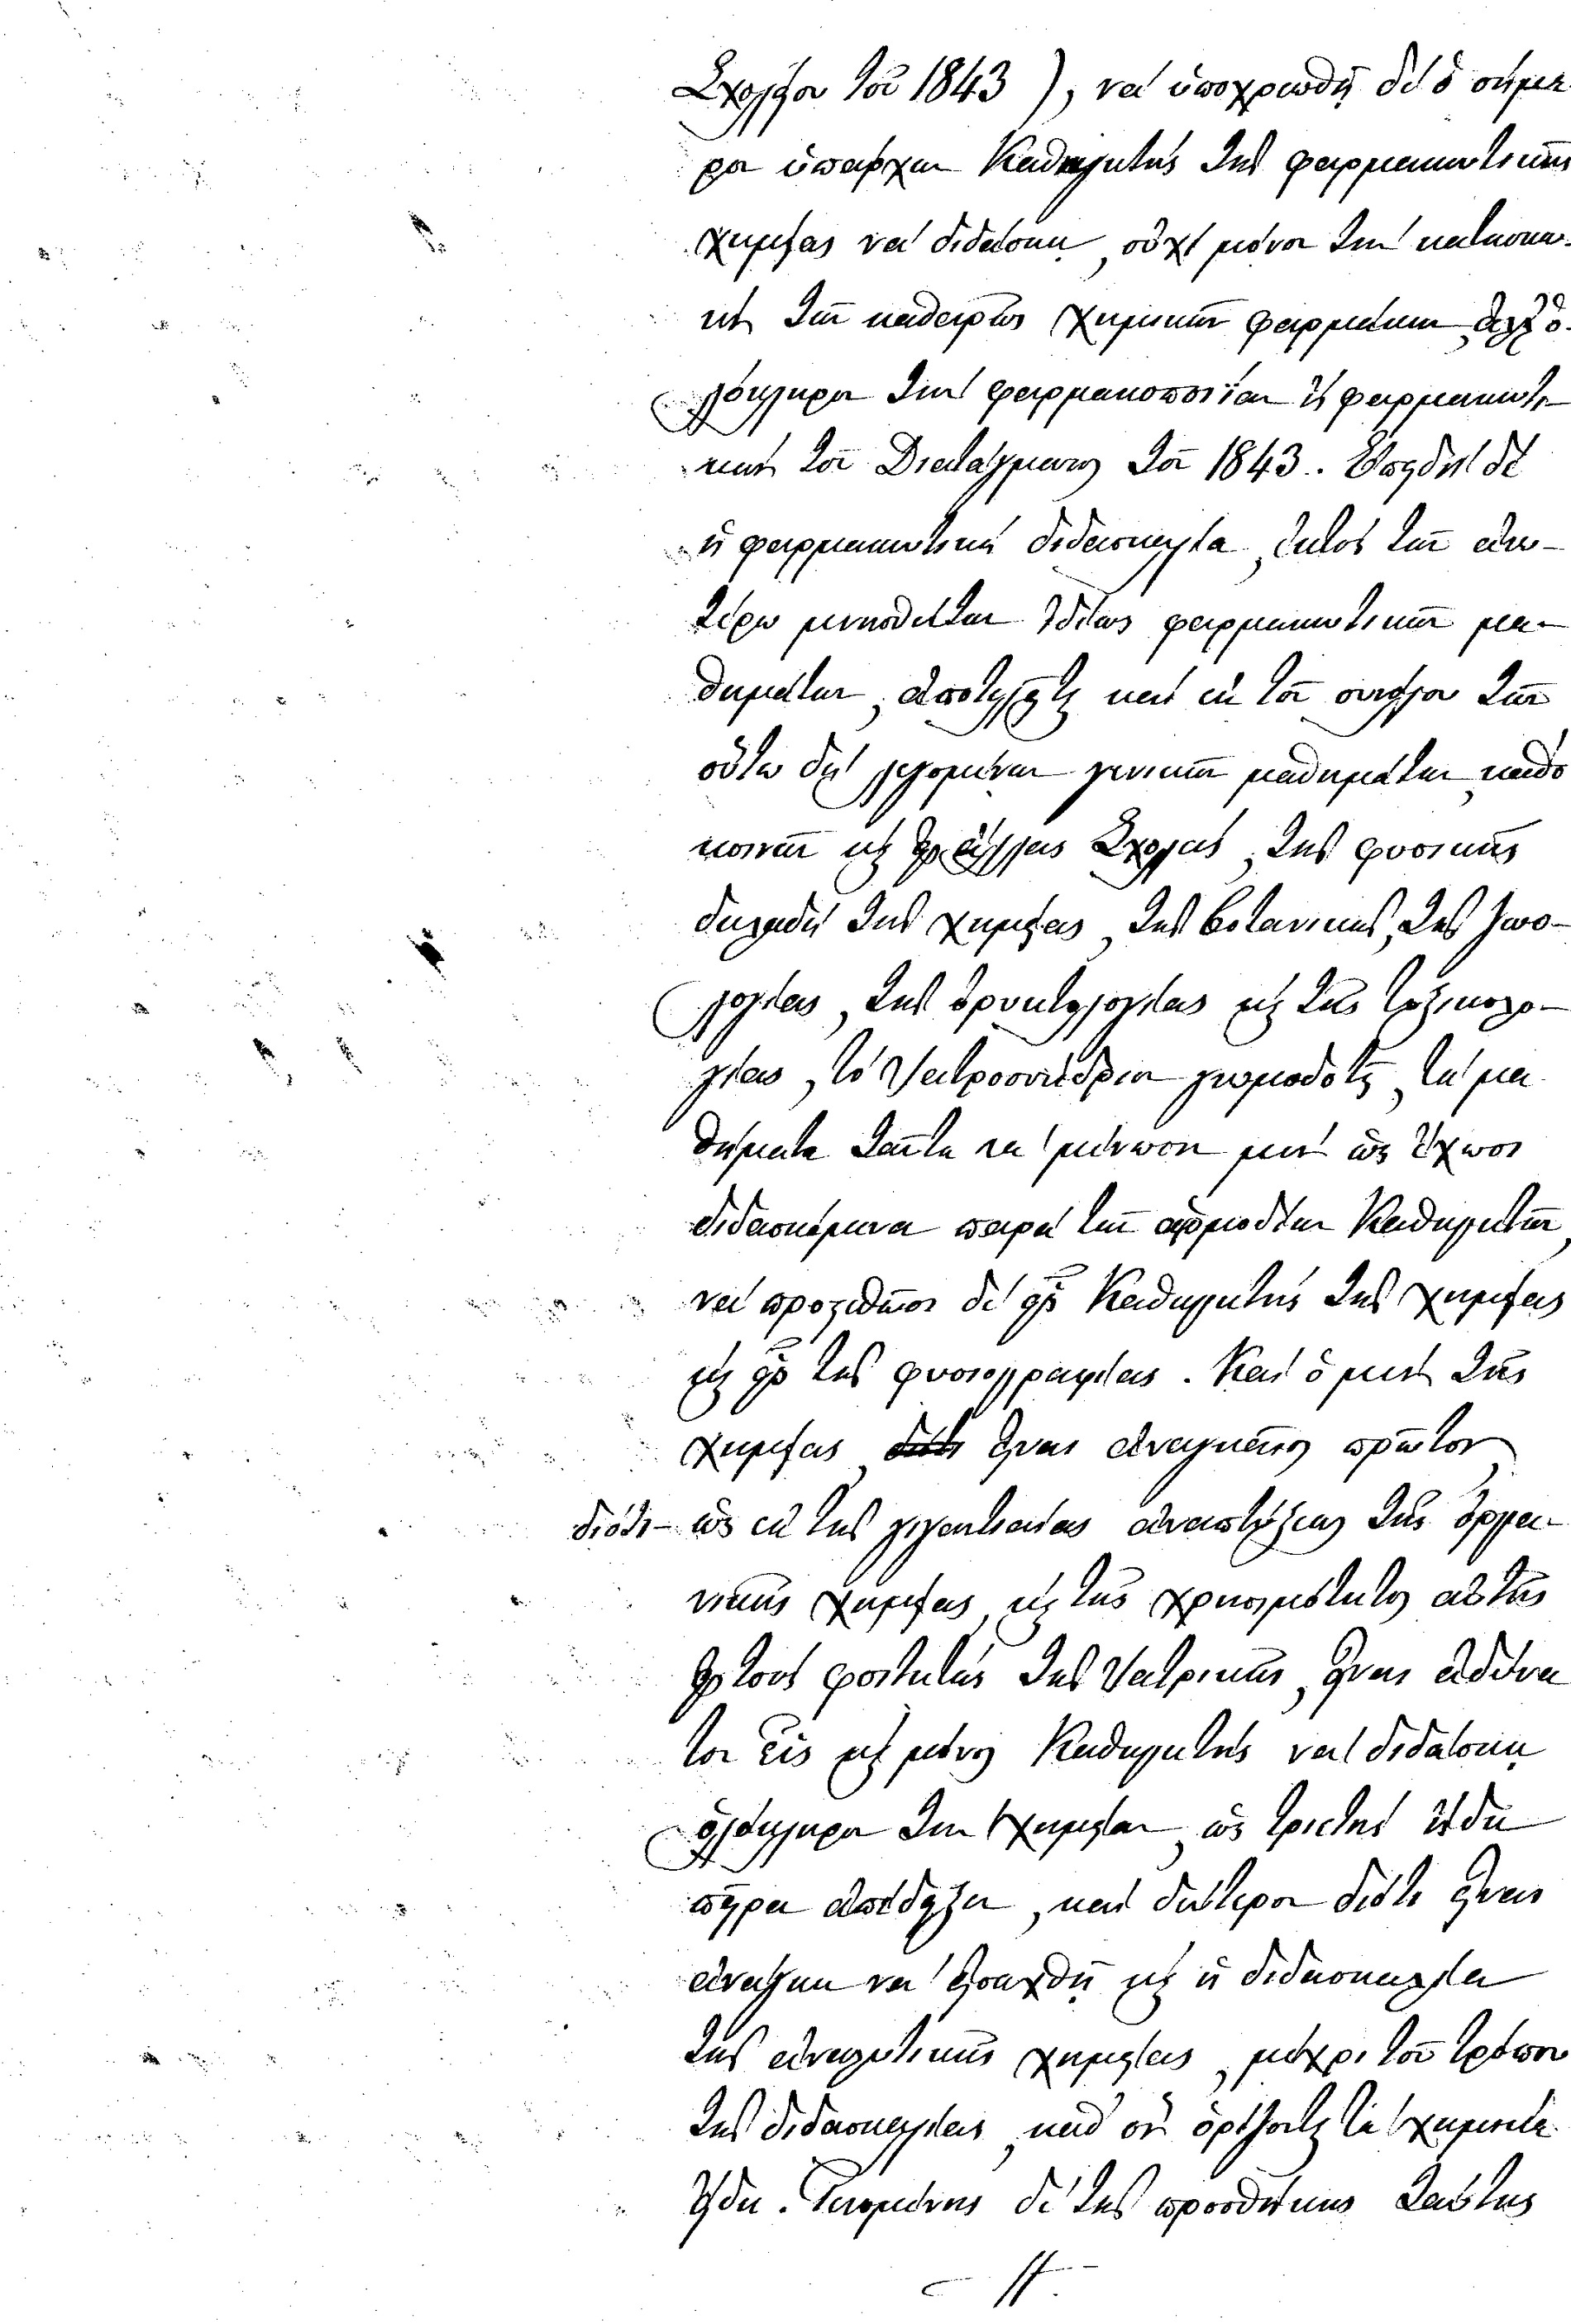 Σχολεῖον τοῦ 1843), νὰ ὑποχρεωθῇ δὲ ὁ σήμε-
ρον ὑπάρχων Καθηγητὴς τῆς φαρμακευτικῆς
χημείας νὰ διδάσκῃ, οὐχὶ μόνον τὴν κατασκευ-
ὴν τῶν καθαρῶς χημικῶν φαρμάκων, ἀλλ' ὁ-
λόκληρον τὴν φαρμακοποιΐαν ἢ φαρμακευτι-
κὴν τοῦ Διατάγματος τοῦ 1843. Ἐπειδὴ δὲ
ἡ φαρμακευτικὴ διδασκαλία, ἐκτὸς τῶν ἀνω-
τέρω μνησθέντων ἰδίως φαρμακευτικῶν μα-
θημάτων, ἀποτελεῖται καὶ ἐκ τοῦ συνόλου τῶν
οὕτω δὴ λεγομένων γενικῶν μαθημάτων, καθὸ
κοινῶν καὶ εἰς ἄλλας Σχολὰς, τῆς φυσικῆς
δηλαδὴ τῆς χημείας, τῆς βοτανικῆς, τῆς ζωο-
λογίας, τῆς ὀρυκτολογίας καὶ τῆς τοξικολο-
γίας, τὸ Ἰατροσυνέδριον γνωμοδοτεῖ, τὰ μα-
θήματα ταῦτα νὰ μείνωσιν μὲν ὡς ἔχωσι
διδασκόμενα παρὰ τῶν ἁρμοδίων Καθηγητῶν,
νὰ προστεθῶσι δὲ εἷς Καθηγητὴς τῆς χημείας
καὶ εἷς τῆς φυσιογραφίας. Καὶ ὁ μὲν τῆς
χημείας εἶναι ἀναγκαῖος πρῶτον
διότι ὡς ἐκ τῆς γιγαντιαίας ἀναπτύξεως τῆς ὀργα-
νικῆς χημείας καὶ τῆς χρησιμότητος αὐτῆς
εἰς τοὺς φοιτητὰς τῆς Ἰατρικῆς, εἶναι ἀδύνα-
τον εἷς καὶ μόνος Καθηγητὴς νὰ διδάσκῃ
ὁλόκληρον τὴν χημείαν, ὡς τριετὴς ἤδη
πεῖρα ἀπέδειξεν, καὶ δεύτερον διότι εἶναι
ἀνάγκη νὰ εἰσαχθῇ καὶ ἡ διδασκαλία
τῆς ἀναλυτικῆς χημείας, μέχρι τοῦ τρόπου
τῆς διδασκαλίας, καθ' ὃν ὁρίζονται τὰ χημικὰ
εἴδη. Γενομένης δὲ τῆς προσθήκης ταύτης